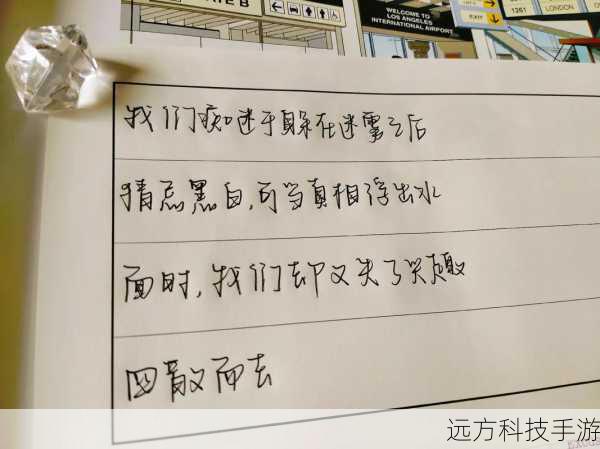 GATE B
WELCOME TO
LOS ANGELES
INTERNATIONAL AIRPORT
EXIT
1261
LONDON
我们痴迷于躲在迷雾之后
猜忌黑白,可当真相浮出水
面时,我们却又失了兴趣
四散而去
远方科技手游